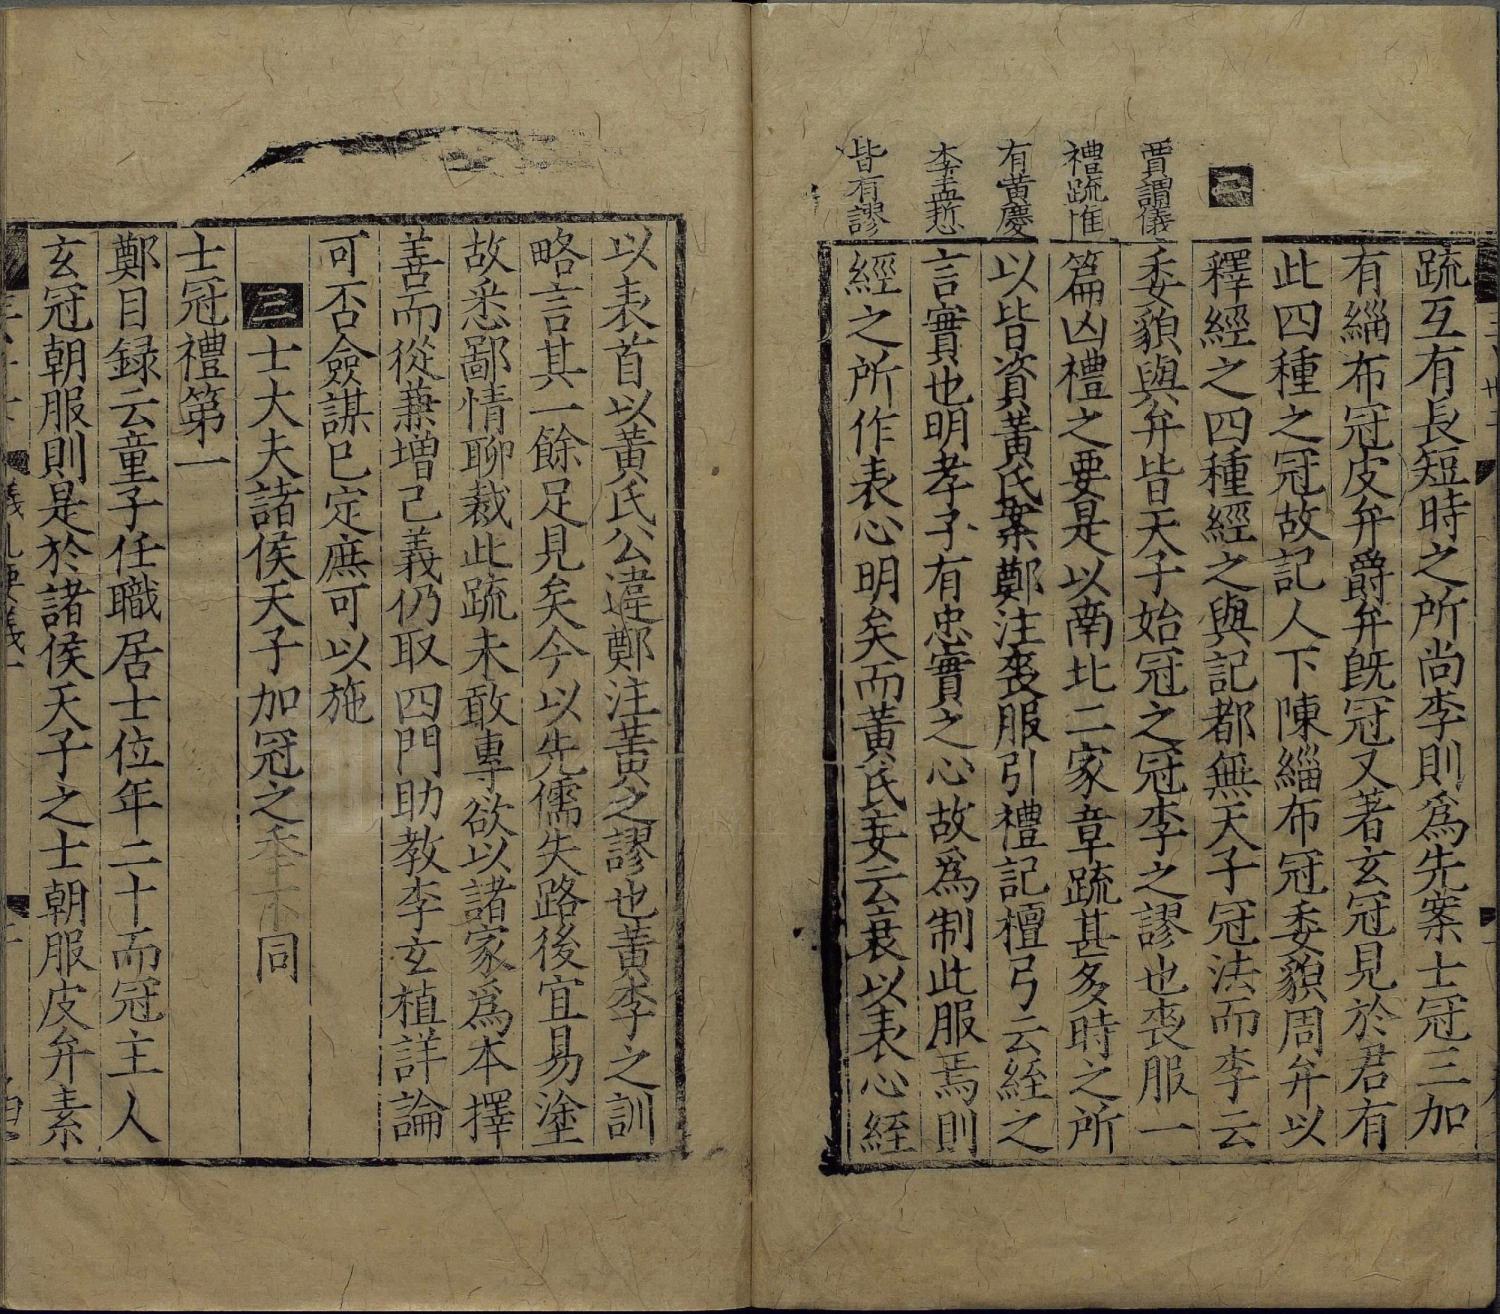 二
賈謂儀
禮疏惟
有黃慶
李孟悊
皆有謬
疏互有長短時之所尚李則為先案士冠三加
有緇布冠皮弁爵弁既冠又著玄冠見於君有
此四種之冠故記人下陳緇布冠委貌周弁以
釋經之四種經之與記都無天子冠法而李云
委貌與弁皆天子始冠之冠李之謬也喪服一
篇凶禮之要是以南北二家章疏甚多時之所
以皆資黃氏案鄭注喪服引禮記檀弓云絰之
言實也明孝子有忠實之心故為制此服焉則
經之所作表心明矣而黃氏妄云衰以表心絰
以表首以黃氏公違鄭注黃之謬也黃李之訓
略言其一餘足見矣今以先儒失路後宜易塗
故悉鄙情聊裁此疏未敢專欲以諸家為本擇
善而從兼增己義仍取四門助教李玄植詳論
可否僉謀已定庶可以施
三 士大夫諸侯天子加冠之年不同
士冠禮第一
鄭目録云童子任職居士位年二十而冠主人
玄冠朝服則是於諸侯天子之士朝服皮弁素